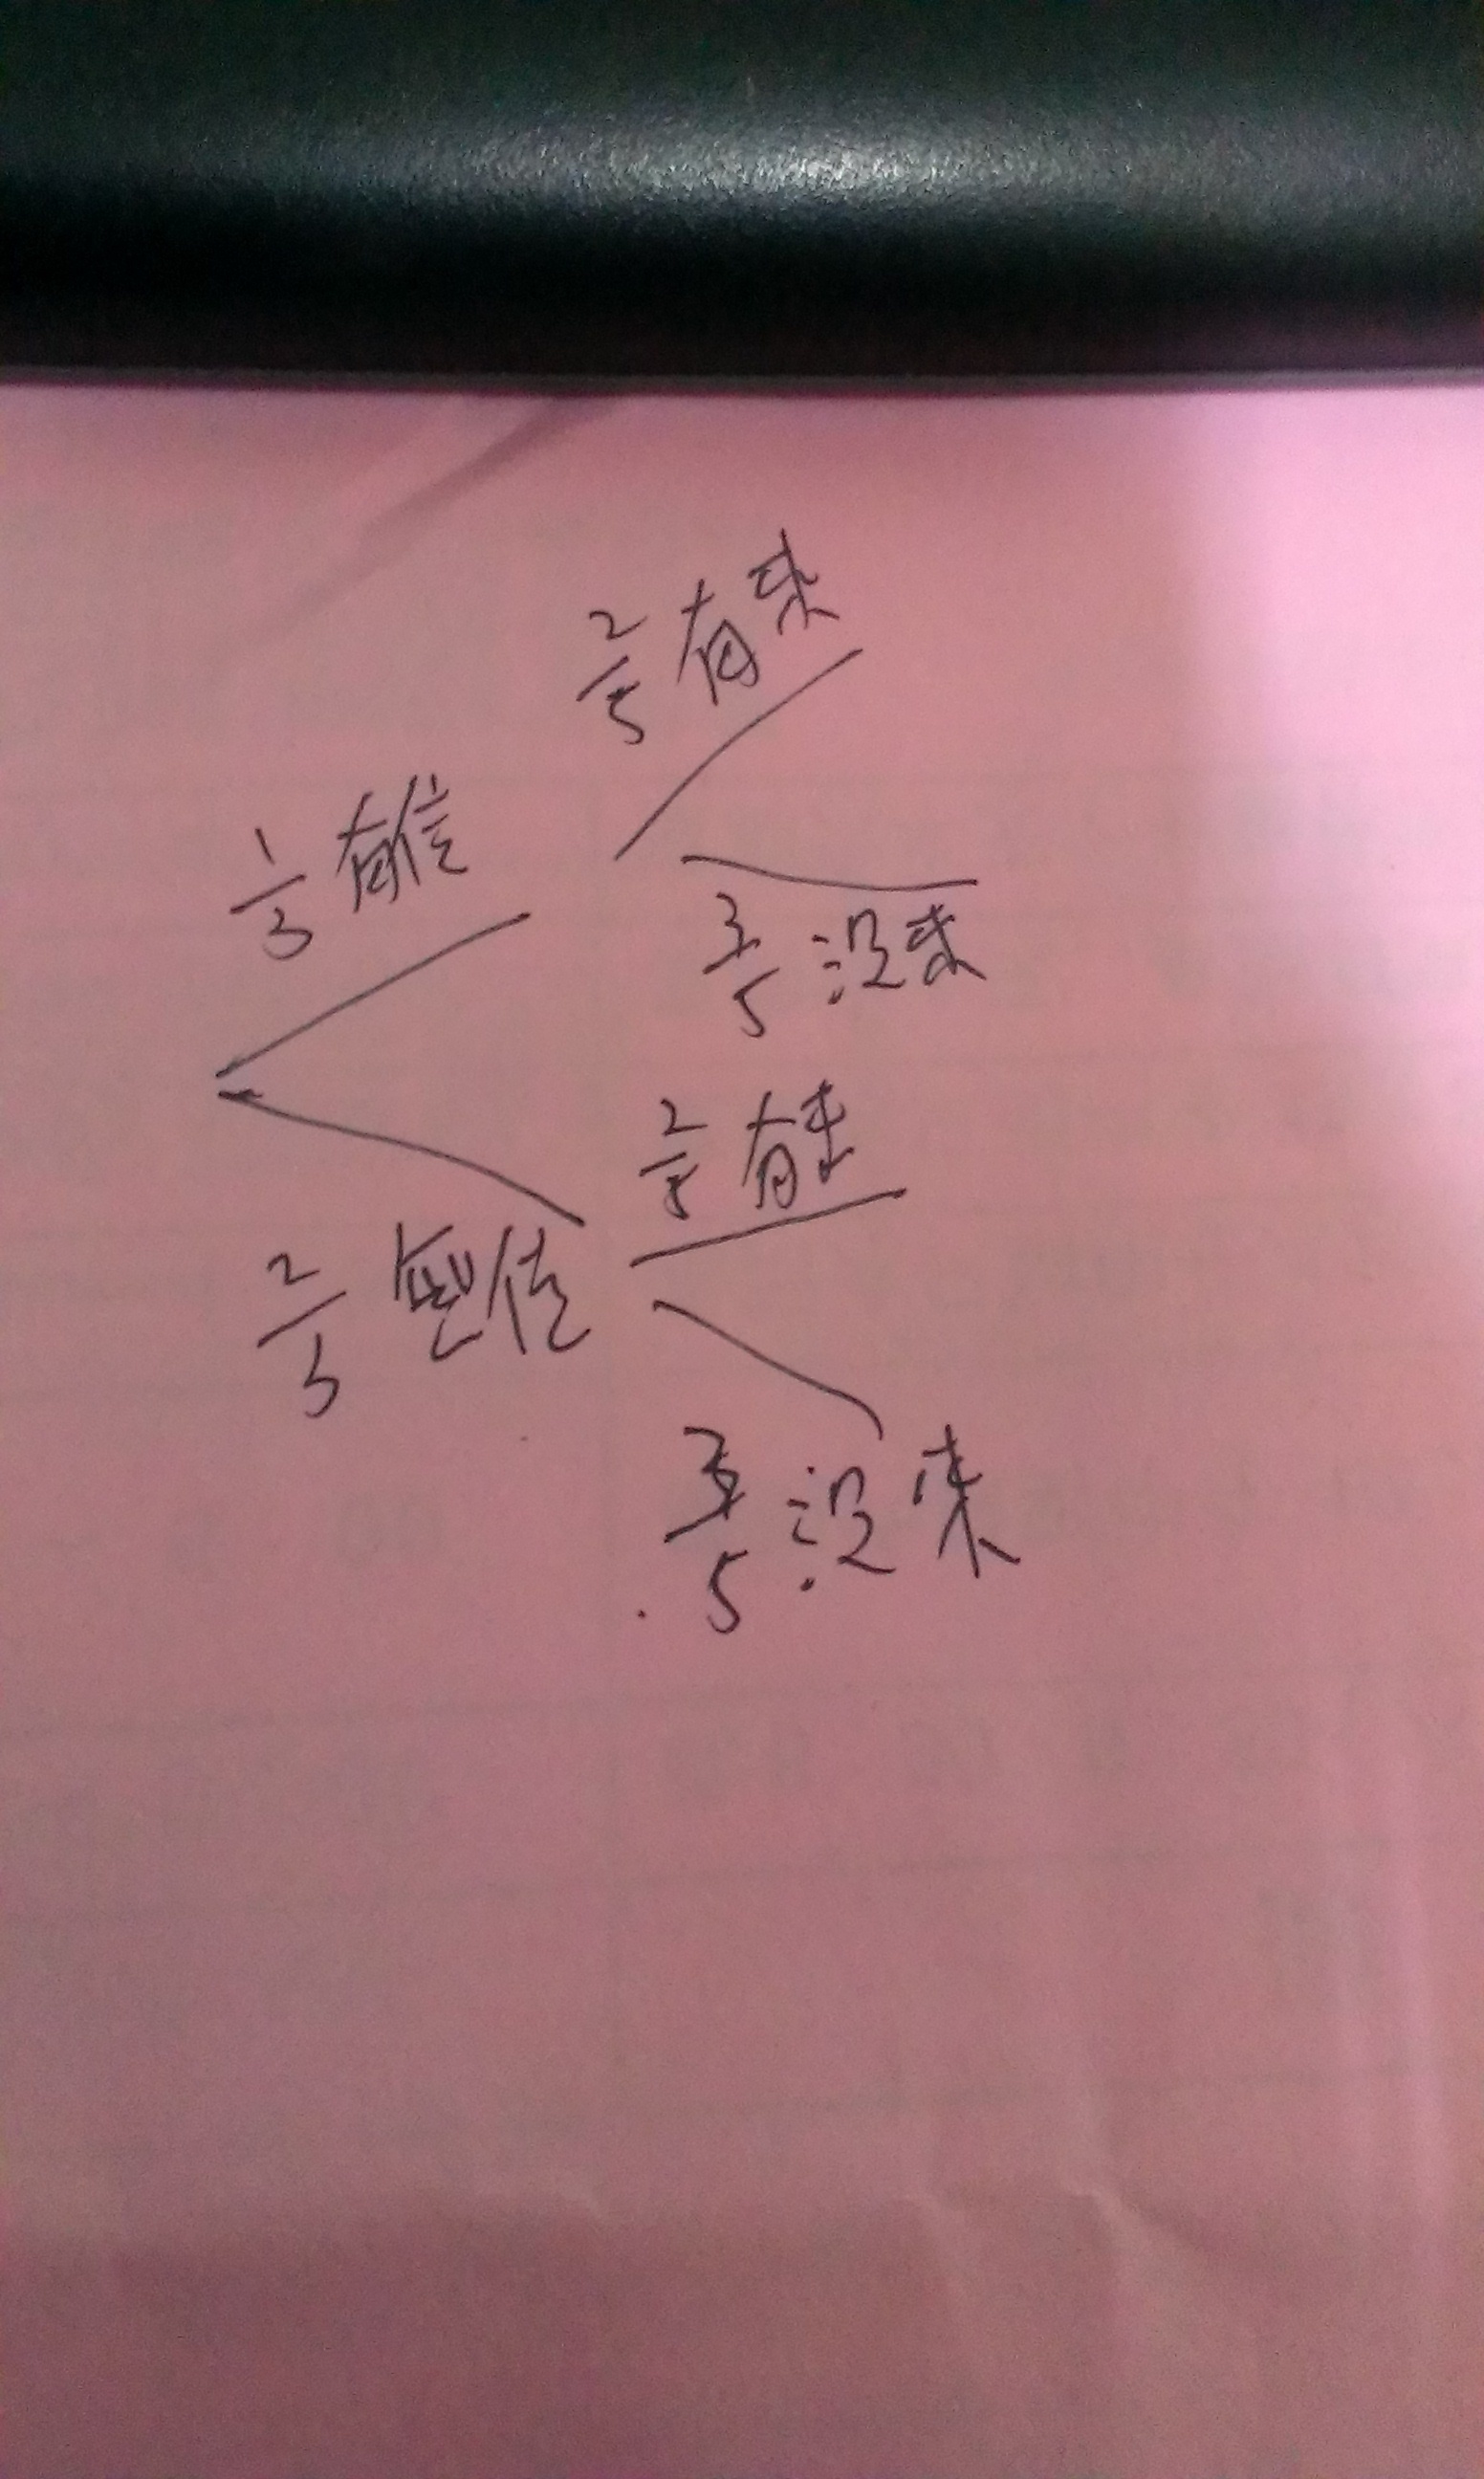 2/5 有来
1/3 有信
3/5 没来
2/5 有来
2/3 無信
3/5 没来